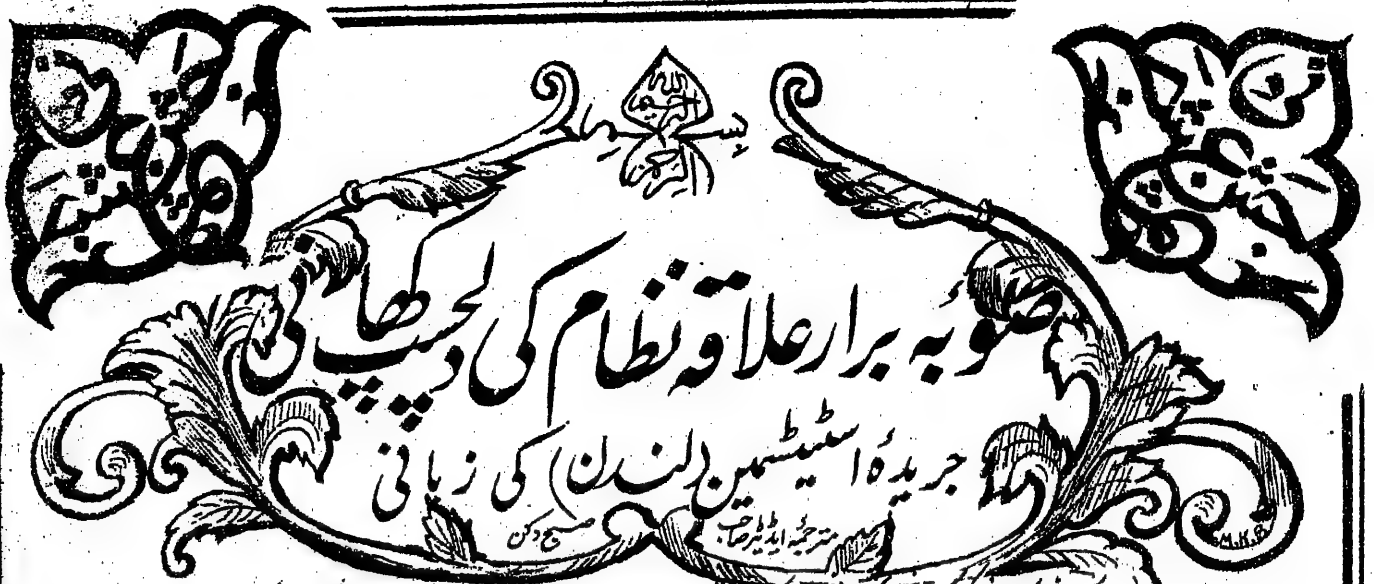 بسم اللہ الرحمن الرحیم
صوبۂ برار علاقہ نظام کی دلچسپ کہانی
جریدۂ اسٹیٹسمین (لندن) کی زبانی
مترجمۂ ایڈیٹر صاحب صبح دکن
M.K.B